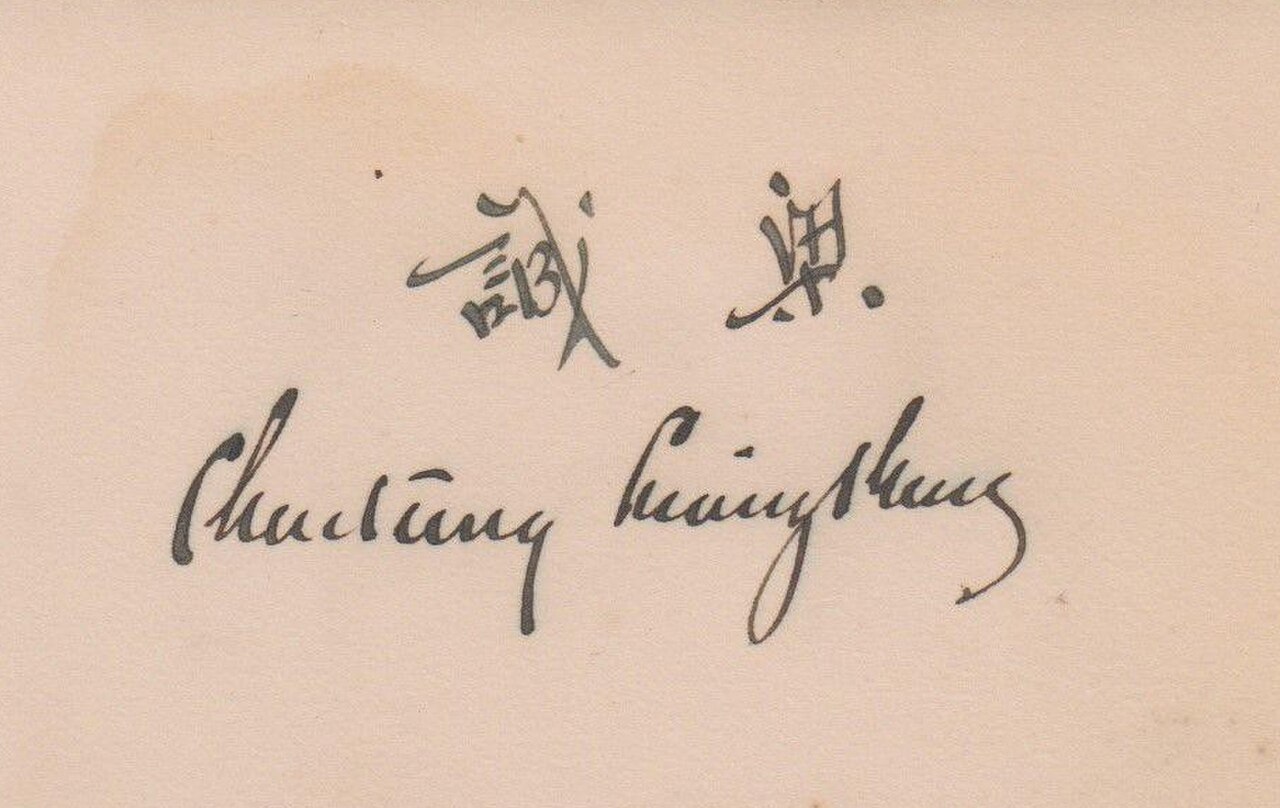 梁 誠
Chentung Liangcheng